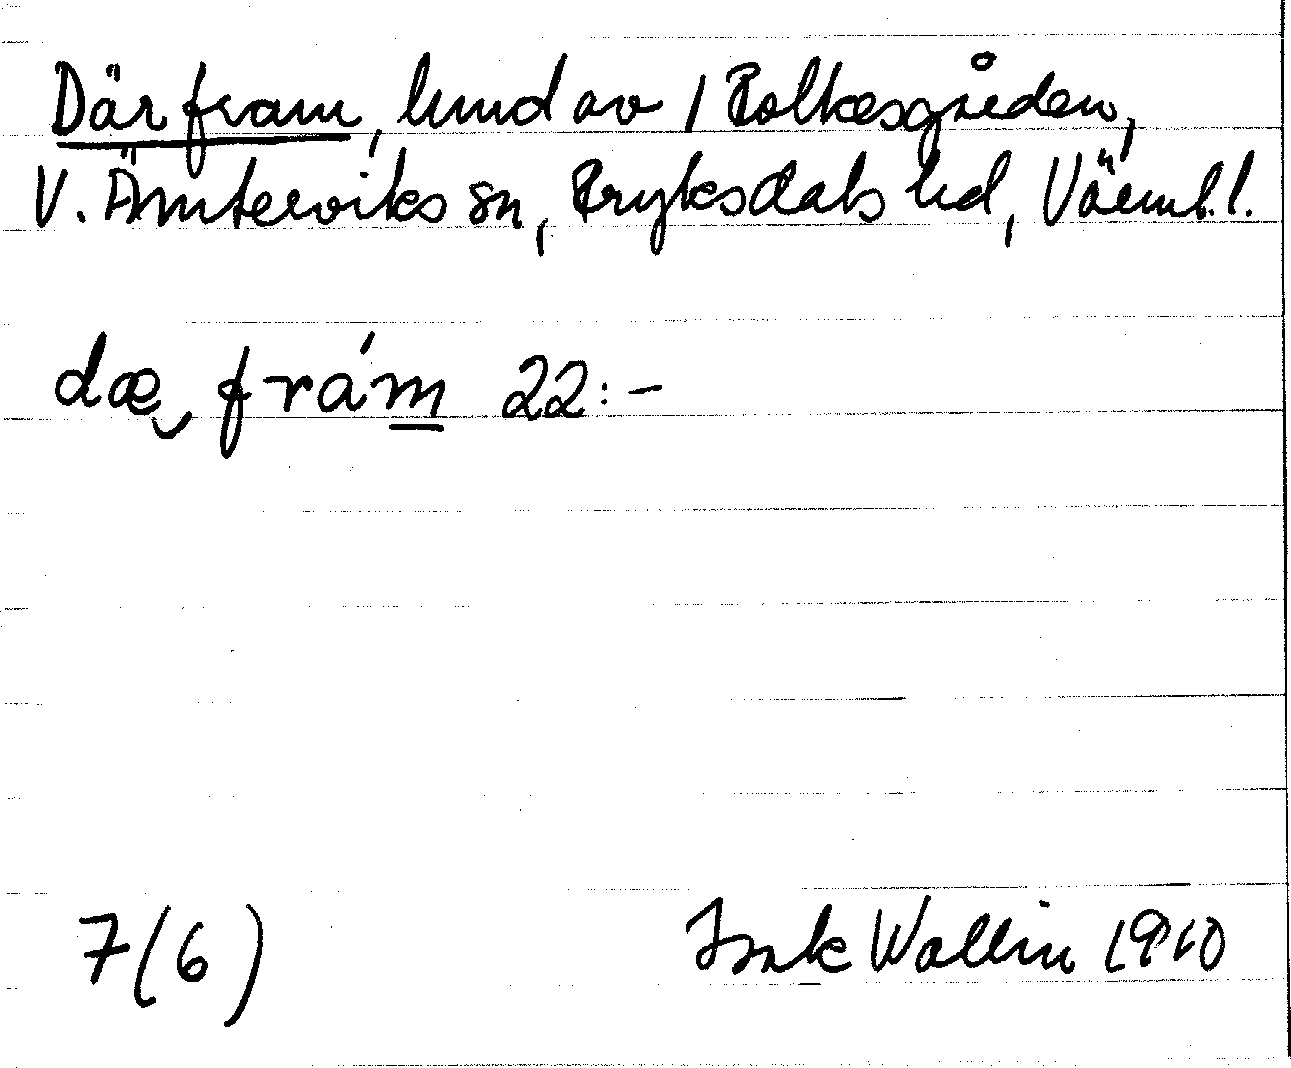 Där fram, lund av 1 Bolkesgården,
V. Ämterviks sn, Fryksdals hd, Värml. l.
dæ, frám 22:-
7(6) Isak Wallin 1910